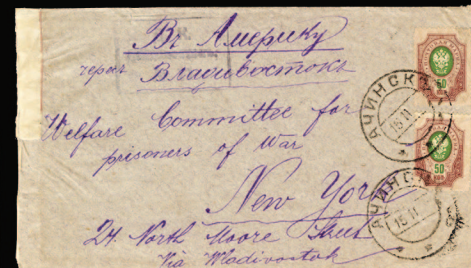 Въ Америку
черезъ Владивостокъ
Welfare Committee for
prisoners of War
New York
24 North Moore Street
Via Wladivostok
АЧИНСК
15 11
50
АЧИНСК
15 11
50
КОП